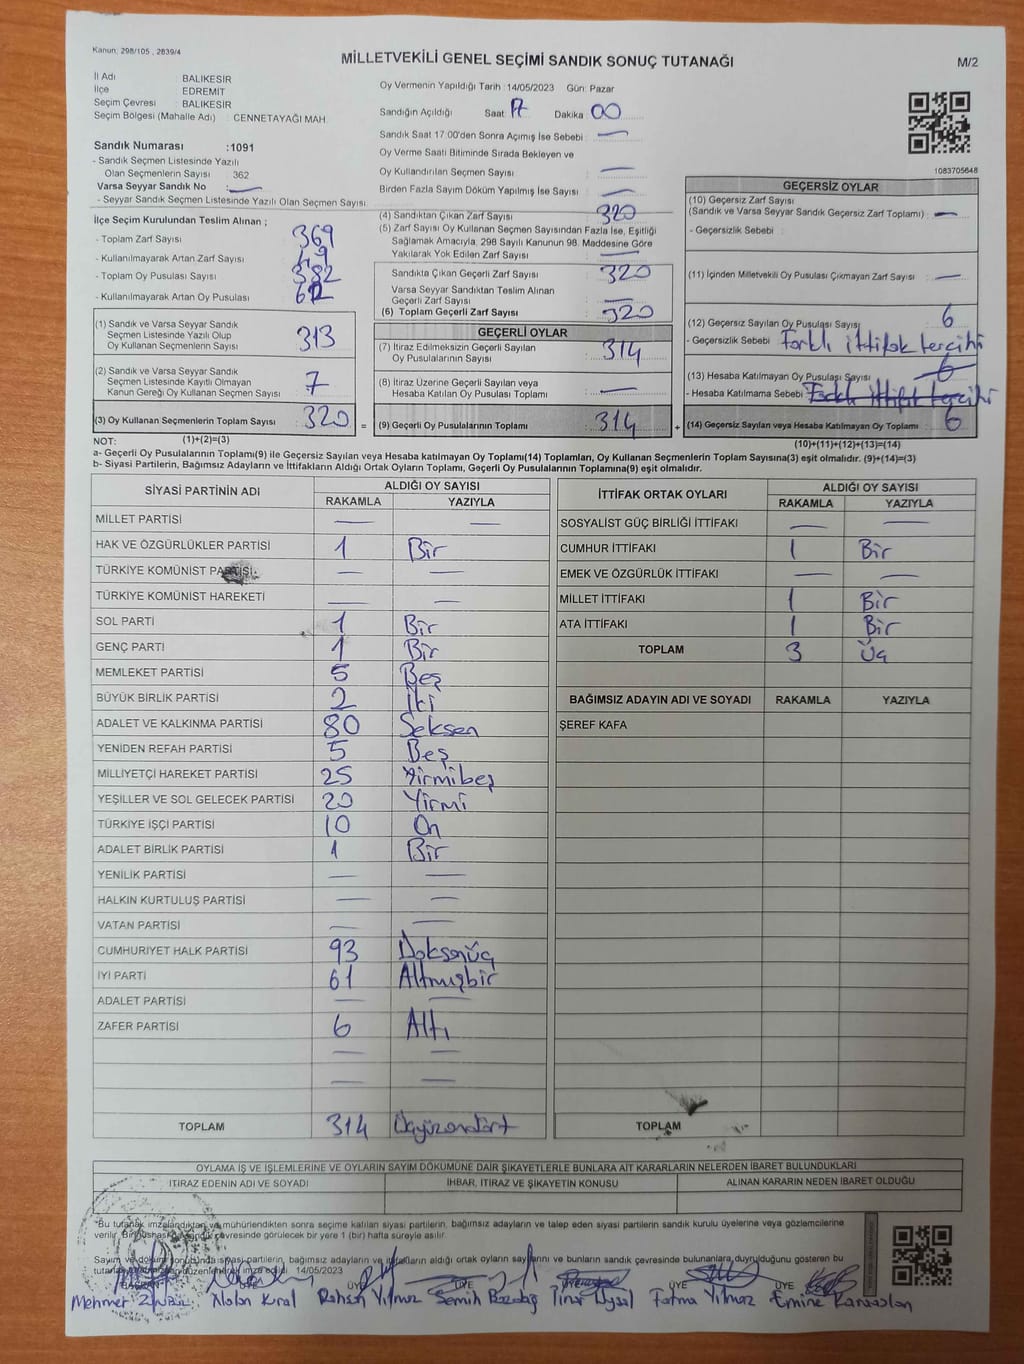 Kanun: 298/105 , 2839/4
MİLLETVEKİLİ GENEL SEÇİMİ SANDIK SONUÇ TUTANAĞI
M/2
İl Adı : BALIKESİR
İlçe EDREMİT
Seçim Çevresi : BALIKESİR
Seçim Bölgesi (Mahalle Adı) : CENNETAYAĞI MAH.
Oy Vermenin Yapıldığı Tarih :14/05/2023 Gün: Pazar
Sandığın Açıldığı Saat 17 Dakika 00
Sandık Saat 17:00'den Sonra Açımış İse Sebebi : —
Oy Verme Saati Bitiminde Sırada Bekleyen ve
Oy Kullandırılan Seçmen Sayısı : —
Birden Fazla Sayım Döküm Yapılmış İse Sayısı : —
1083705648
Sandık Numarası :1091
- Sandık Seçmen Listesinde Yazılı
Olan Seçmenlerin Sayısı : 362
Varsa Seyyar Sandık No : —
- Seyyar Sandık Seçmen Listesinde Yazılı Olan Seçmen Sayısı
İlçe Seçim Kurulundan Teslim Alınan ;
- Toplam Zarf Sayısı : 369
- Kullanılmayarak Artan Zarf Sayısı : 49
- Toplam Oy Pusulası Sayısı : 382
- Kullanılmayarak Artan Oy Pusulası : 62
(1) Sandık ve Varsa Seyyar Sandık
Seçmen Listesinde Yazılı Olup
Oy Kullanan Seçmenlerin Sayısı : 313
(2) Sandık ve Varsa Seyyar Sandık
Seçmen Listesinde Kayıtlı Olmayan
Kanun Gereği Oy Kullanan Seçmen Sayısı : 7
(3) Oy Kullanan Seçmenlerin Toplam Sayısı : 320 =
(4) Sandıktan Çıkan Zarf Sayısı : 320
(5) Zarf Sayısı Oy Kullanan Seçmen Sayısından Fazla İse, Eşitliği
Sağlamak Amacıyla, 298 Sayılı Kanunun 98. Maddesine Göre
Yakılarak Yok Edilen Zarf Sayısı : —
Sandıkta Çıkan Geçerli Zarf Sayısı : 320
Varsa Seyyar Sandıktan Teslim Alınan
Geçerli Zarf Sayısı : —
(6) Toplam Geçerli Zarf Sayısı : 320
GEÇERLİ OYLAR
(7) İtiraz Edilmeksizin Geçerli Sayılan
Oy Pusulalarının Sayısı : 314
(8) İtiraz Üzerine Geçerli Sayılan veya
Hesaba Katılan Oy Pusulası Toplamı : —
(9) Geçerli Oy Pusulalarının Toplamı : 314 +
GEÇERSİZ OYLAR
(10) Geçersiz Zarf Sayısı
(Sandık ve Varsa Seyyar Sandık Geçersiz Zarf Toplamı) : —
- Geçersizlik Sebebi :
(11) İçinden Milletvekili Oy Pusulası Çıkmayan Zarf Sayısı : —
(12) Geçersiz Sayılan Oy Pusulası Sayısı : 6
- Geçersizlik Sebebi : Farklı ittifak tercihi
(13) Hesaba Katılmayan Oy Pusulası Sayısı : 6
- Hesaba Katılmama Sebebi : Farklı ittifak tercihi
(14) Geçersiz Sayılan veya Hesaba Katılmayan Oy Toplamı : 6
NOT: (1)+(2)=(3)
(10)+(11)+(12)+(13)=(14)
a- Geçerli Oy Pusulalarının Toplamı(9) ile Geçersiz Sayılan veya Hesaba katılmayan Oy Toplamı(14) Toplamları, Oy Kullanan Seçmenlerin Toplam Sayısına(3) eşit olmalıdır. (9)+(14)=(3)
b- Siyasi Partilerin, Bağımsız Adayların ve İttifakların Aldığı Ortak Oyların Toplamı, Geçerli Oy Pusulalarının Toplamına(9) eşit olmalıdır.
SİYASİ PARTİNİN ADI
ALDIĞI OY SAYISI
RAKAMLA YAZIYLA
MİLLET PARTİSİ — —
HAK VE ÖZGÜRLÜKLER PARTİSİ 1 Bir
TÜRKİYE KOMÜNİST PARTİSİ — —
TÜRKİYE KOMÜNİST HAREKETİ — —
SOL PARTİ 1 Bir
GENÇ PARTİ 1 Bir
MEMLEKET PARTİSİ 5 Beş
BÜYÜK BİRLİK PARTİSİ 2 İki
ADALET VE KALKINMA PARTİSİ 80 Seksen
YENİDEN REFAH PARTİSİ 5 Beş
MİLLİYETÇİ HAREKET PARTİSİ 25 Yirmibeş
YEŞİLLER VE SOL GELECEK PARTİSİ 20 Yirmi
TÜRKİYE İŞÇİ PARTİSİ 10 On
ADALET BİRLİK PARTİSİ 1 Bir
YENİLİK PARTİSİ — —
HALKIN KURTULUŞ PARTİSİ — —
VATAN PARTİSİ — —
CUMHURİYET HALK PARTİSİ 93 Doksanüç
İYİ PARTİ 61 Altmışbir
ADALET PARTİSİ — —
ZAFER PARTİSİ 6 Altı
— —
— —
TOPLAM 314 Üçyüzondört
İTTİFAK ORTAK OYLARI
ALDIĞI OY SAYISI
RAKAMLA YAZIYLA
SOSYALİST GÜÇ BİRLİĞİ İTTİFAKI — —
CUMHUR İTTİFAKI 1 Bir
EMEK VE ÖZGÜRLÜK İTTİFAKI — —
MİLLET İTTİFAKI 1 Bir
ATA İTTİFAKI 1 Bir
TOPLAM 3 Üç
BAĞIMSIZ ADAYIN ADI VE SOYADI RAKAMLA YAZIYLA
ŞEREF KAFA
TOPLAM
OYLAMA İŞ VE İŞLEMLERİNE VE OYLARIN SAYIM DÖKÜMÜNE DAİR ŞİKAYETLERLE BUNLARA AİT KARARLARIN NELERDEN İBARET BULUNDUKLARI
İTİRAZ EDENİN ADI VE SOYADI İHBAR, İTİRAZ VE ŞİKAYETİN KONUSU ALINAN KARARIN NEDEN İBARET OLDUĞU
*Bu tutanak imzalandıktan ve mühürlendikten sonra seçime katılan siyasi partilerin, bağımsız adayların ve talep eden siyasi partilerin sandık kurulu üyelerine veya gözlemcilerine
verilir. Bir nüshası sandık çevresinde görülecek bir yere 1 (bir) hafta süreyle asılır.
Sayım ve döküm sonunda siyasi partilerin, bağımsız adayların ve ittifakların aldığı ortak oyların sayılarını ve bunların sandık çevresinde bulunanlara duyrulduğunu gösteren bu
tutanak düzenlenerek imza edildi 14/05/2023
ÜYE ÜYE ÜYE ÜYE
Mehmet Kıral Yılmaz Semih Bozdağ Pınar Uysal Fatma Yılmaz Emine